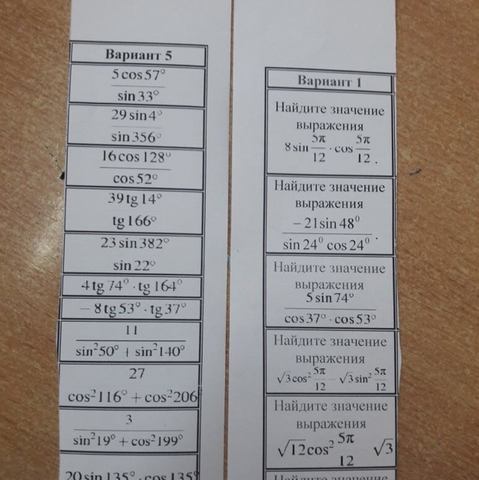 Вариант 5
5 cos 57°
sin 33°
29 sin 4°
sin 356°
16 cos 128°
cos 52°
39 tg 14°
tg 166°
23 sin 382°
sin 22°
4 tg 74° · tg 164°
– 8 tg 53° · tg 37°
11
sin²50° + sin²140°
27
cos²116° + cos²206
3
sin²19° + cos²199°
20 sin 135° · cos 135°
Вариант 1
Найдите значение
выражения
8 sin 5π/12 · cos 5π/12 .
Найдите значение
выражения
– 21 sin 48⁰
sin 24⁰ cos 24⁰ .
Найдите значение
выражения
5 sin 74°
cos 37° · cos 53°
Найдите значение
выражения
√3 cos² 5π/12 – √3 sin² 5π/12
Найдите значение
выражения
√12 cos² 5π/12 √3
Найдите значение